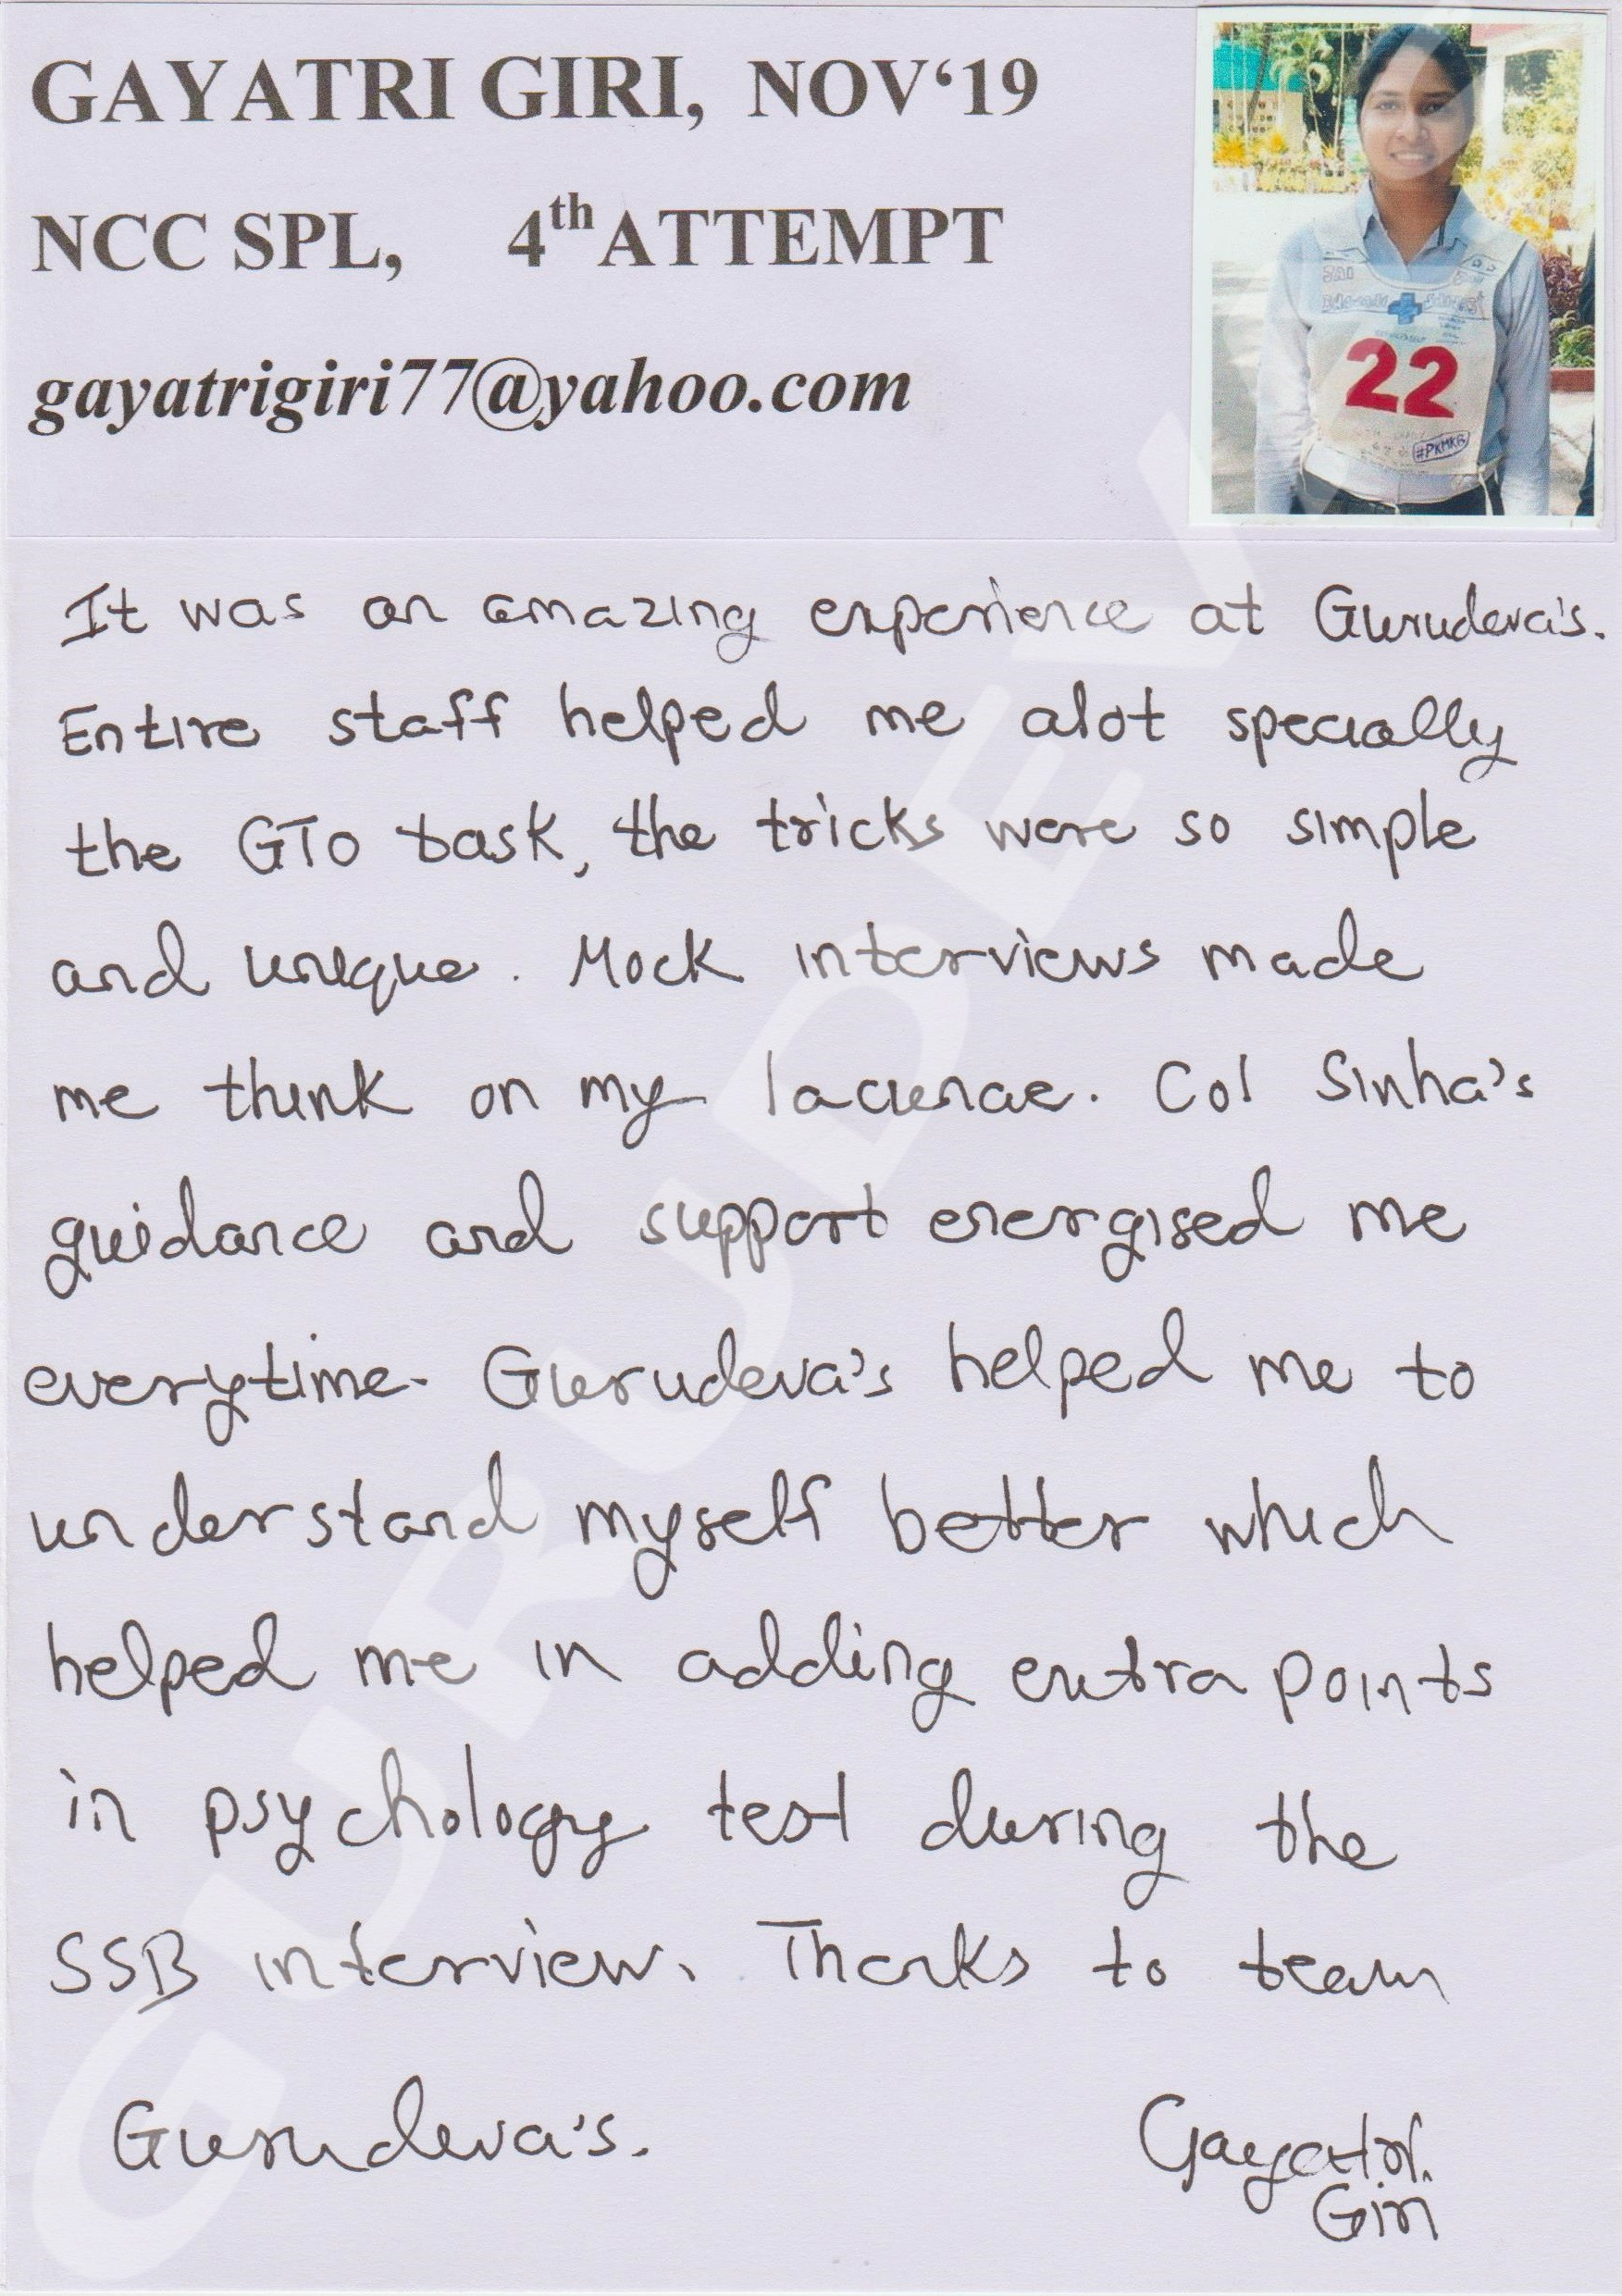 GAYATRI GIRI, NOV‘19
NCC SPL, 4th ATTEMPT
gayatrigiri77@yahoo.com
22
#PKMKB
It was an amazing experience at Gurudeva's.
Entire staff helped me alot specially
the GTO task, the tricks were so simple
and unique. Mock interviews made
me think on my lacunae. Col Sinha's
guidance and support energised me
everytime. Gurudeva's helped me to
understand myself better which
helped me in adding extra points
in psychology test during the
SSB interview. Thanks to team
Gurudeva's.
Gayatri
Giri
GURUDEVA